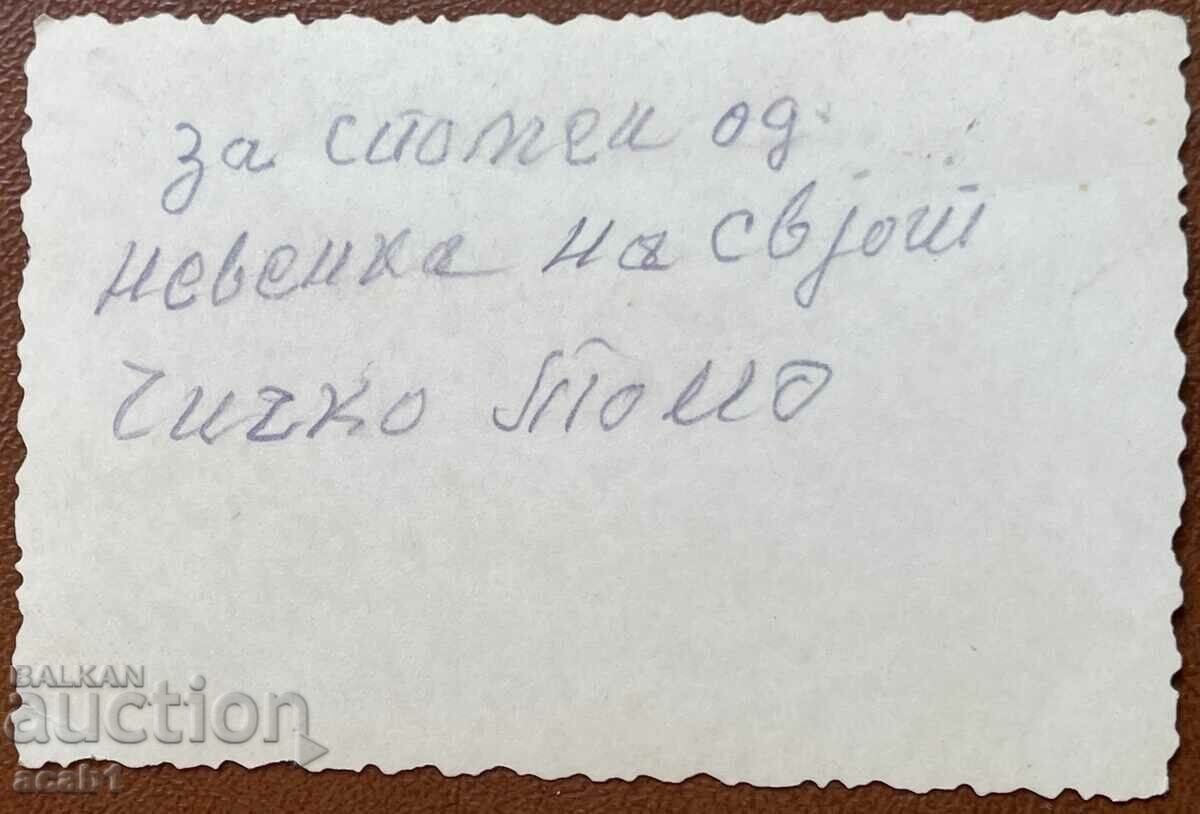 за спомен од
невенка на свјот
чичко Томо
BALKAN
auction
acab1